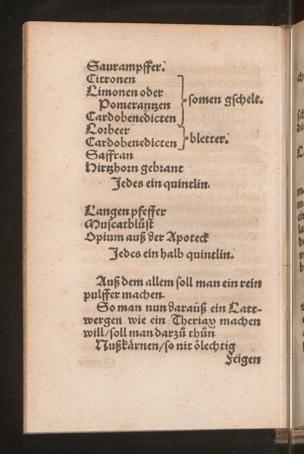 Saurampffer.
Citronen
Limonen oder
Pomerantzen
Cardobenedicten
somen gschelt.
Lorbeer
Cardobenedicten
bletter.
Saffran
Hirtzhorn gebrant
Jedes ein quintlin.
Langen pfeffer
Muscatblüst
Opium auß der Apoteck
Jedes ein halb quintlin.
Auß dem allem soll man ein rein
pulffer machen.
So man nun darauß ein Latt-
wergen wie ein Theriax machen
will/soll man darzů thůn
Nußkärnen/so nit ölechtig
Feigen